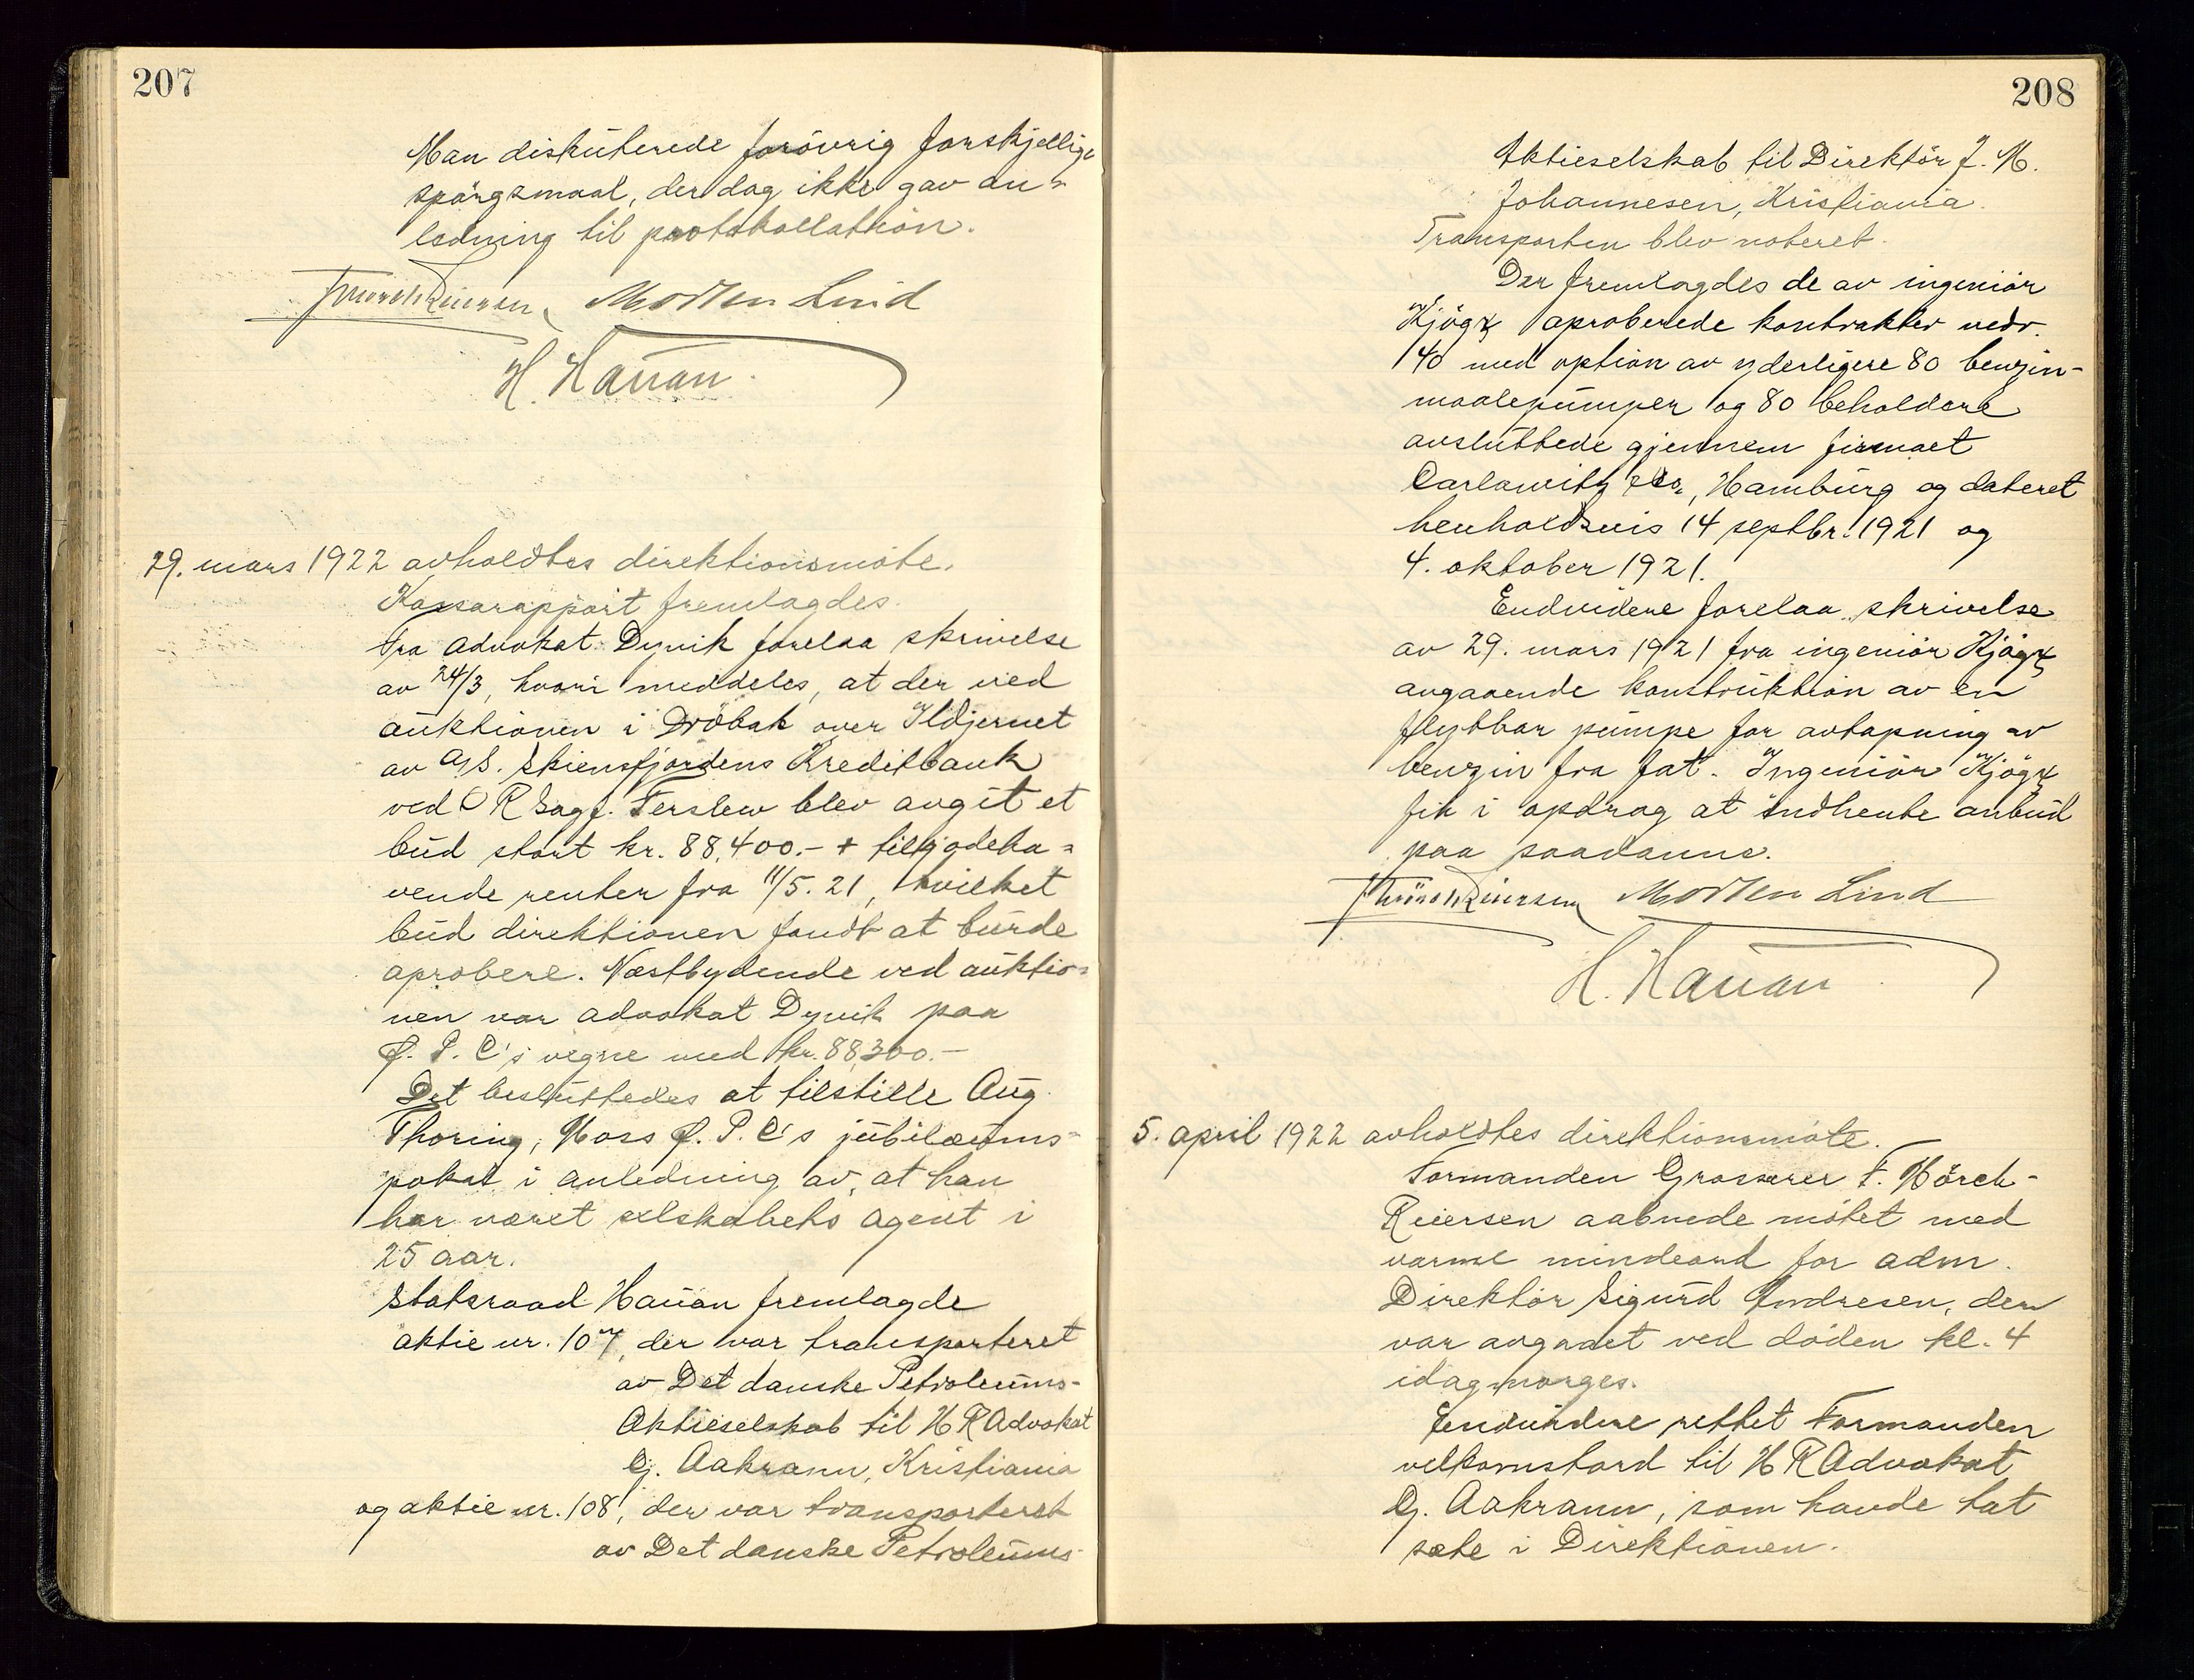 207
Man diskuterede forøvrig forskjellige
spørgsmaal, der dog ikke gav an=
ledning til protokollation.
F Mörch Reiersen Morten Lind
H. Hauan
29. mars 1922 avholdtes direktionsmöte.
Kassarapport fremlagdes.
Fra Advokat Dyvik forelaa skrivelse
av 24/3, hvori meddeles, at der ved
auktionen i Dröbak over Ildjernet
av A/S. Skiensfjordens Kreditbank
ved ORSagf. Ferslew blev avgit et
bud stort kr. 88,400.- + tilgodeha=
vende renter fra 11/5. 21, hvilket
bud direktionen fandt at burde
aprobere. Næstbydende ved auktio=
nen var advokat Dyvik paa
Ö. P. C's vegne med kr. 88,300.-
Det besluttedes at tilstille Aug.
Thoring, Moss Ö. P. C's jubilæums-
pokal i anledning av, at han
har været selskabets agent i
25 aar.
Statsraad Hauan fremlagde
aktie nr. 107, der var transporteret
av Det danske Petroleums-
Aktieselskab til HRAdvokat
Cj. Aakrann, Kristiania
og aktie nr. 108, der var transporteret
av Det danske Petroleums-
208
Aktieselskab til Direktör J. M.
Johannesen, Kristiania.
Transporten blev noteret.
Der fremlagdes de av ingeniör
Kjögx aproberede kontrakter vedr.
40 med option av yderligere 80 benzin-
maalepumper og 80 beholdere
avsluttede gjennem firmaet
Carlowitz & Co, Hamburg og dateret
henholdsvis 14 septbr. 1921 og
4. oktober 1921.
Endvidere forelaa skrivelse
av 29. mars 1921 fra ingeniör Kjögx
angaaende konstruktion av en
flytbar pumpe for avtapning av
benzin fra fat. Ingeniör Kjögx
fik i opdrag at indhente anbud
paa saadanne.
F Mörch Reiersen Morten Lind
H. Hauan
5. april 1922 avholdtes direktionsmöte.
Formanden Grosserer F. Mörch-
Reiersen aabnede mötet med
varme mindeord for adm.
Direktör Sigurd Andresen, der
var avgaaet ved döden kl. 4
idag morges.
Endvidere rettet Formanden
velkomstord til HRAdvokat
Cj. Aakrann, som havde tat
sæte i Direktionen.